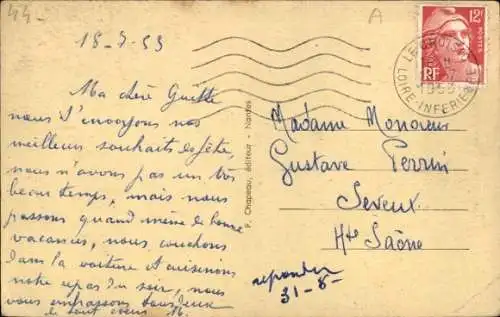 44-
A
18-7-53
Ma chère Guitte
nous t'envoyons nos
meilleurs souhaits de fête,
nous n'avons pas un très
beau temps, mais nous
passons quand même de bonnes
vacances, nous couchons
dans la voiture et cuisinons
notre repas du soir, nous
vous embrassons tous deux
P. Chapeau, éditeur - Nantes
12F
POSTES
RF
LOIRE-INFERIEURE
1953
Madame Monsieur
Gustave Perrin
Seveux
Hte Saône
repondu
31-8-